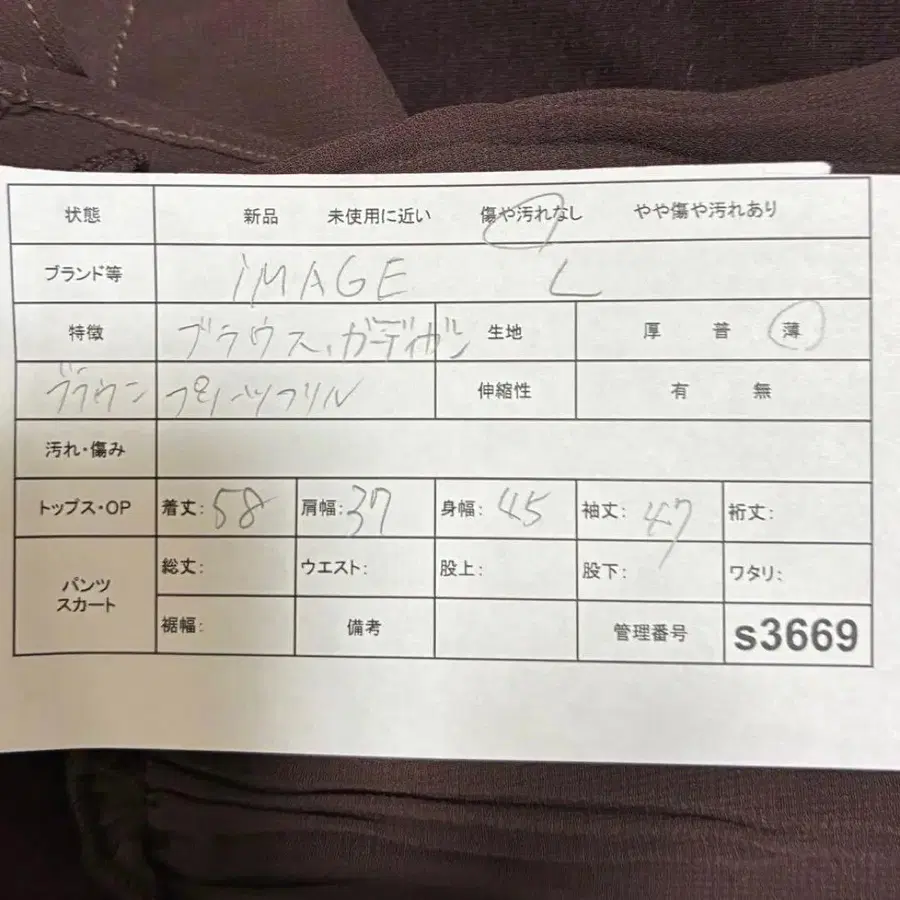 状態 新品 未使用に近い 傷や汚れなし やや傷や汚れあり
ブランド等 IMAGE L
特徴 ブラウス、ガーディガン 生地 厚 普 薄
ブラウン プリーツフリル 伸縮性 有 無
汚れ・傷み
トップス・OP 着丈: 58 肩幅: 37 身幅: 45 袖丈: 47 裄丈:
パンツ スカート 総丈: ウエスト: 股上: 股下: ワタリ:
裾幅: 備考 管理番号 s3669